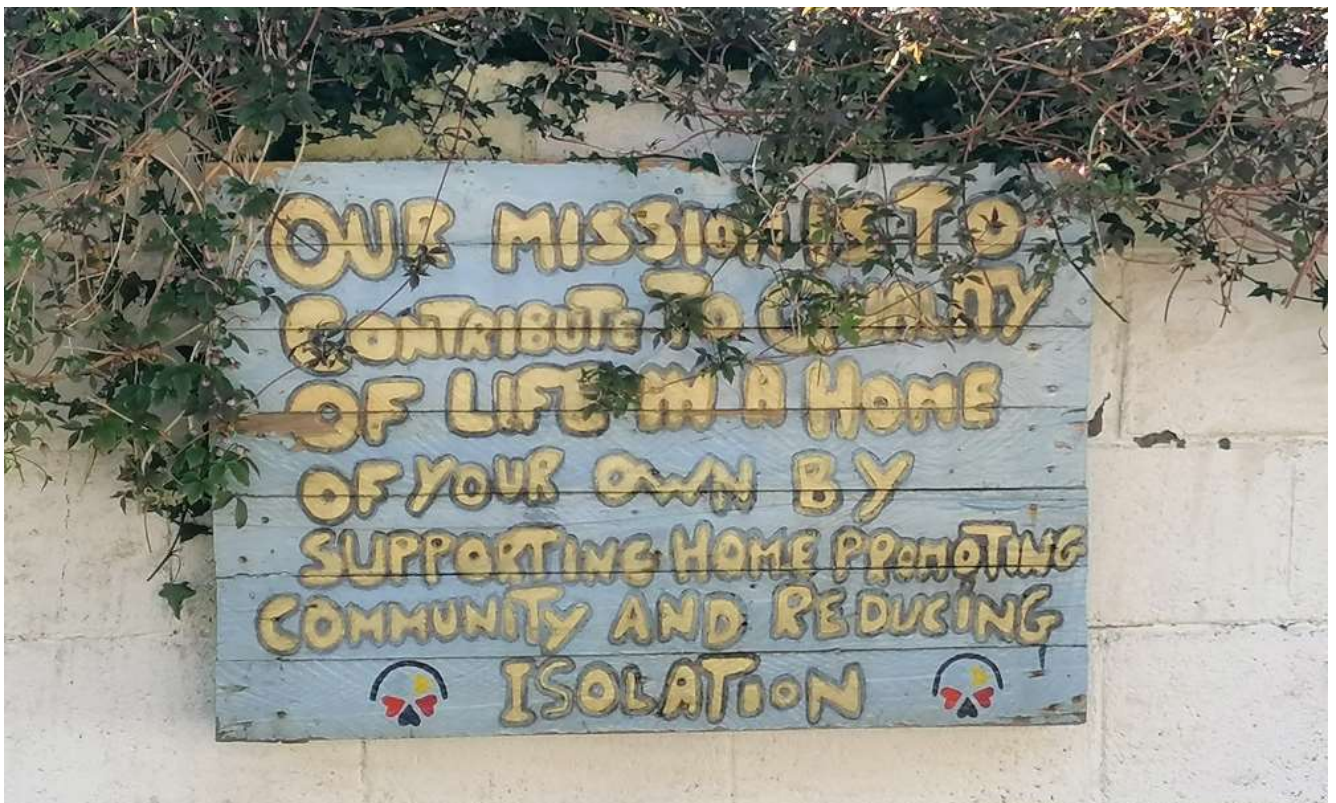 OUR MISSION IS TO
CONTRIBUTE TO QUALITY
OF LIFE IN A HOME
OF YOUR OWN BY
SUPPORTING HOME PROMOTING
COMMUNITY AND REDUCING
ISOLATION